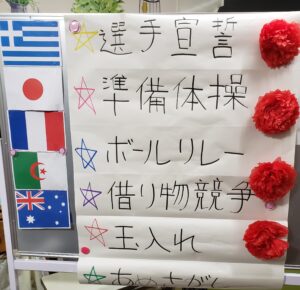 選手宣誓
準備体操
ボールリレー
借り物競争
玉入れ